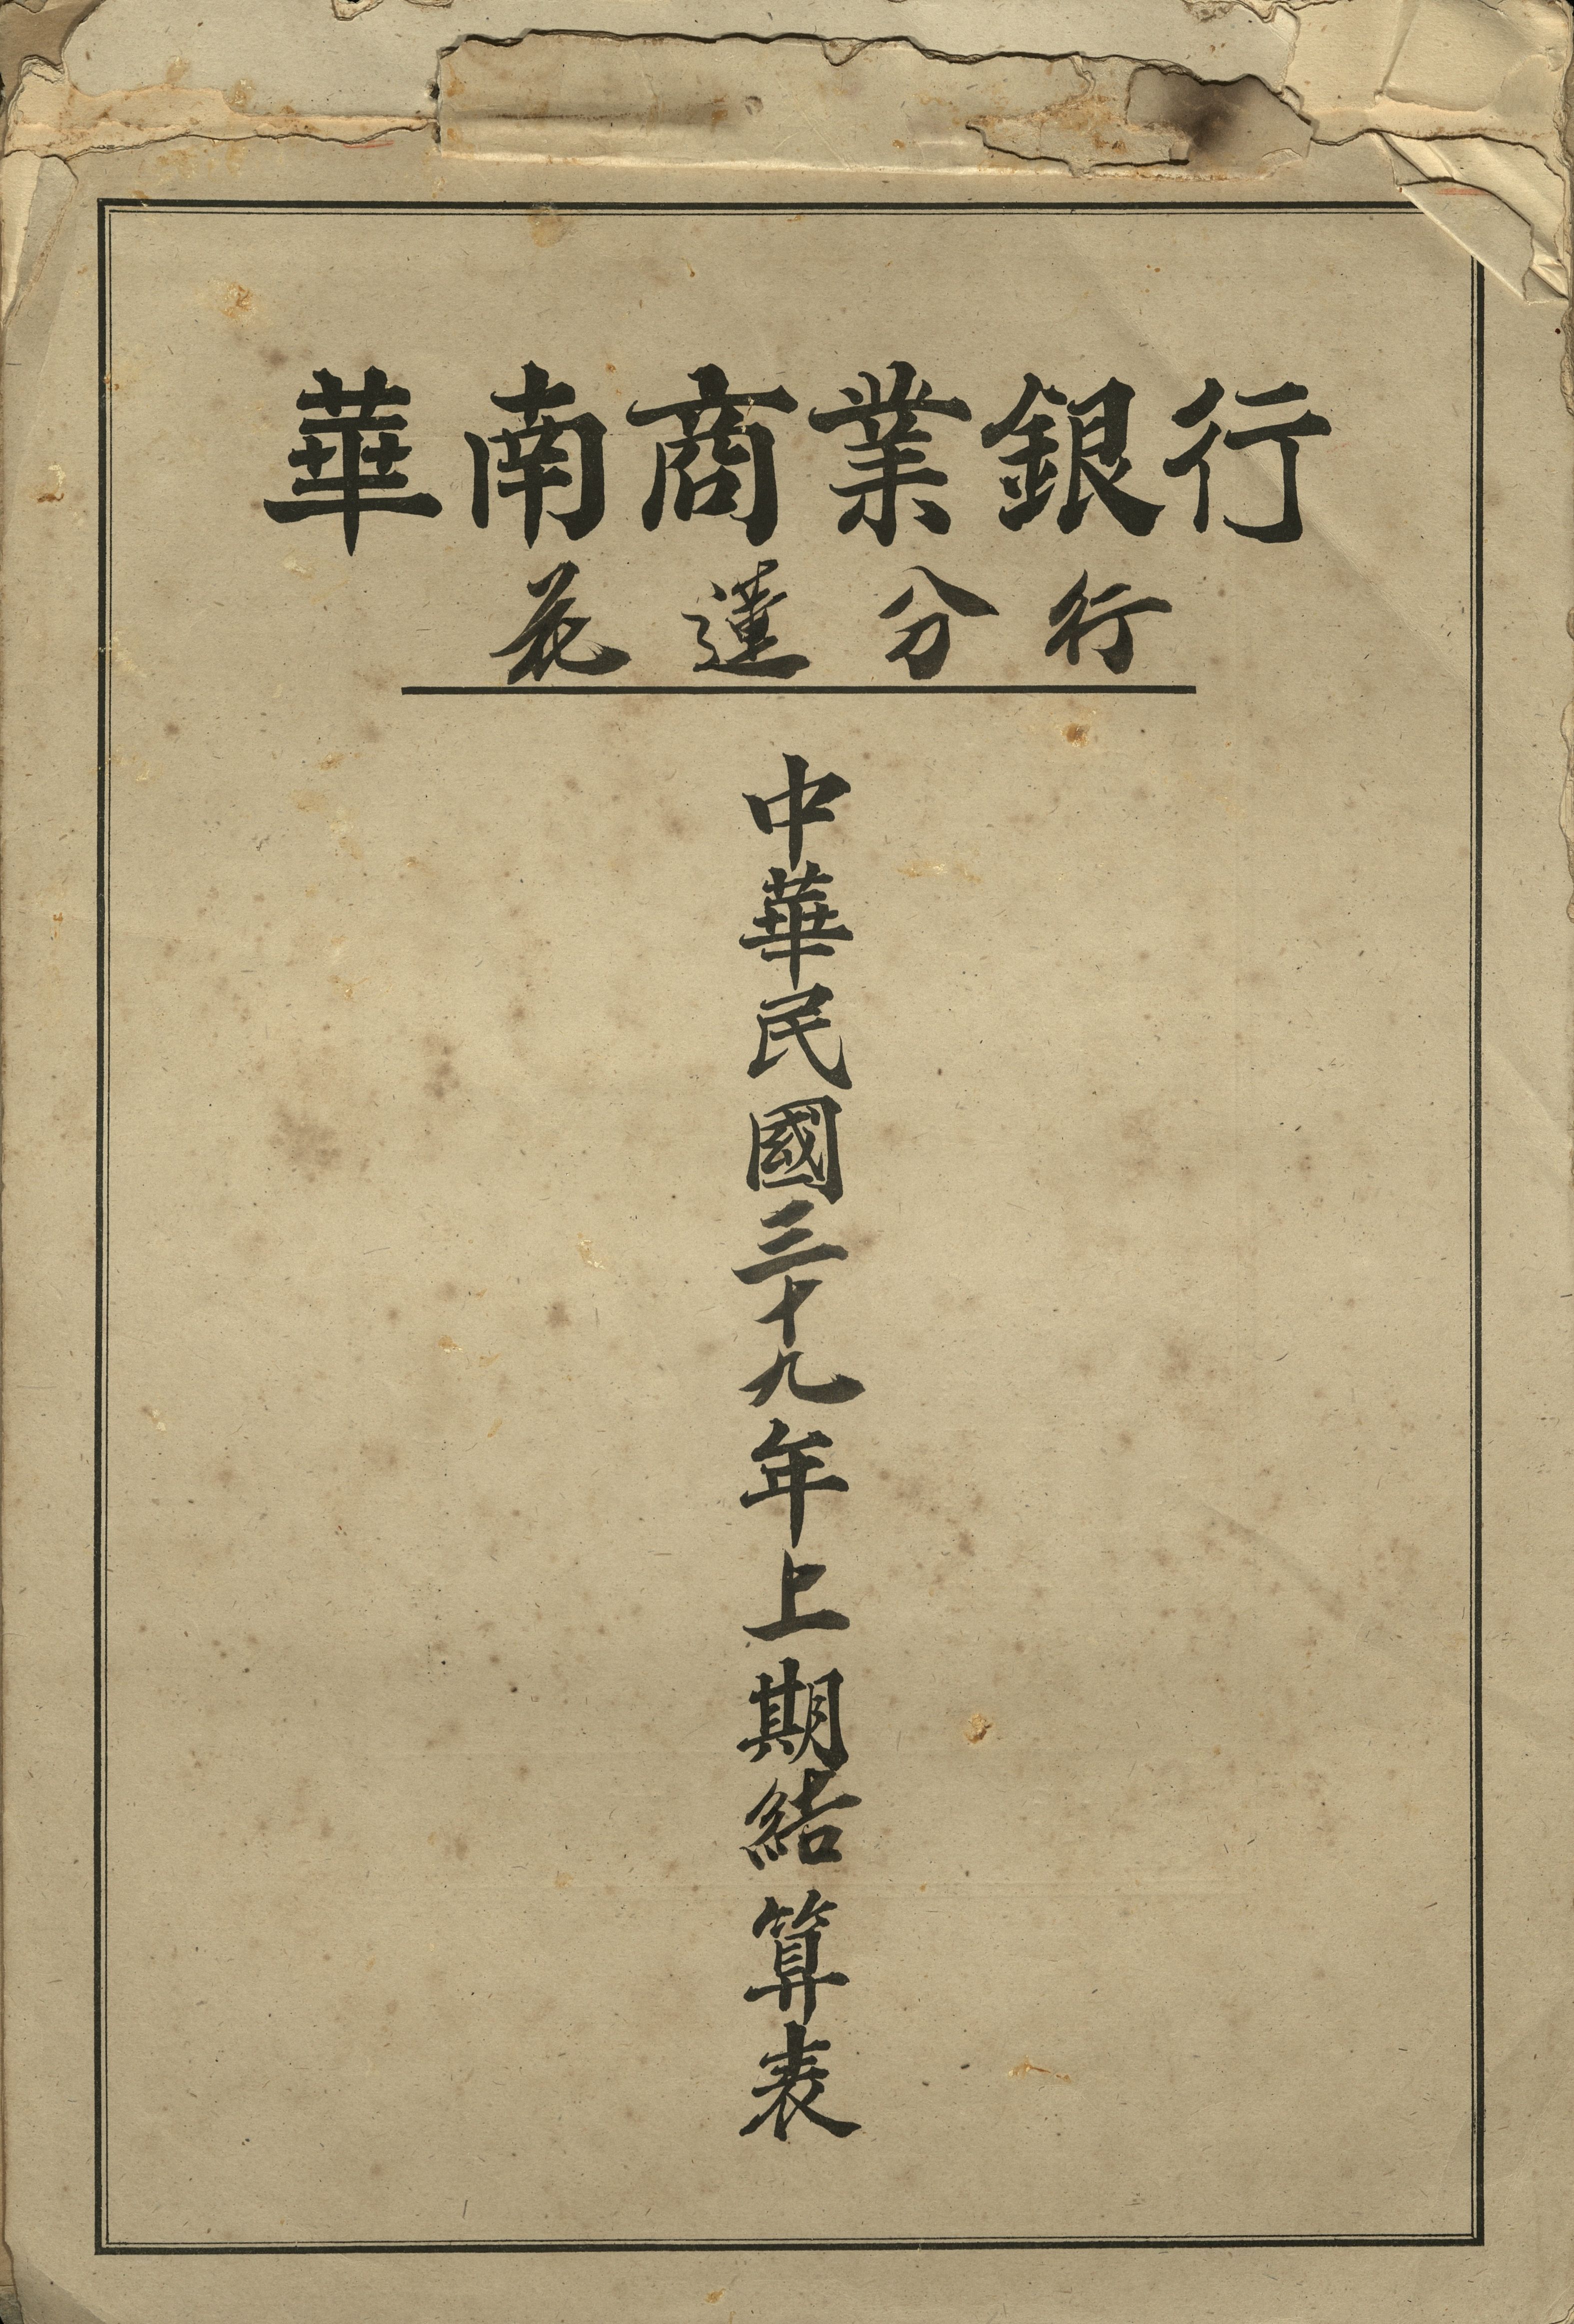 華南商業銀行
花蓮分行
中華民國三十九年上期結算表